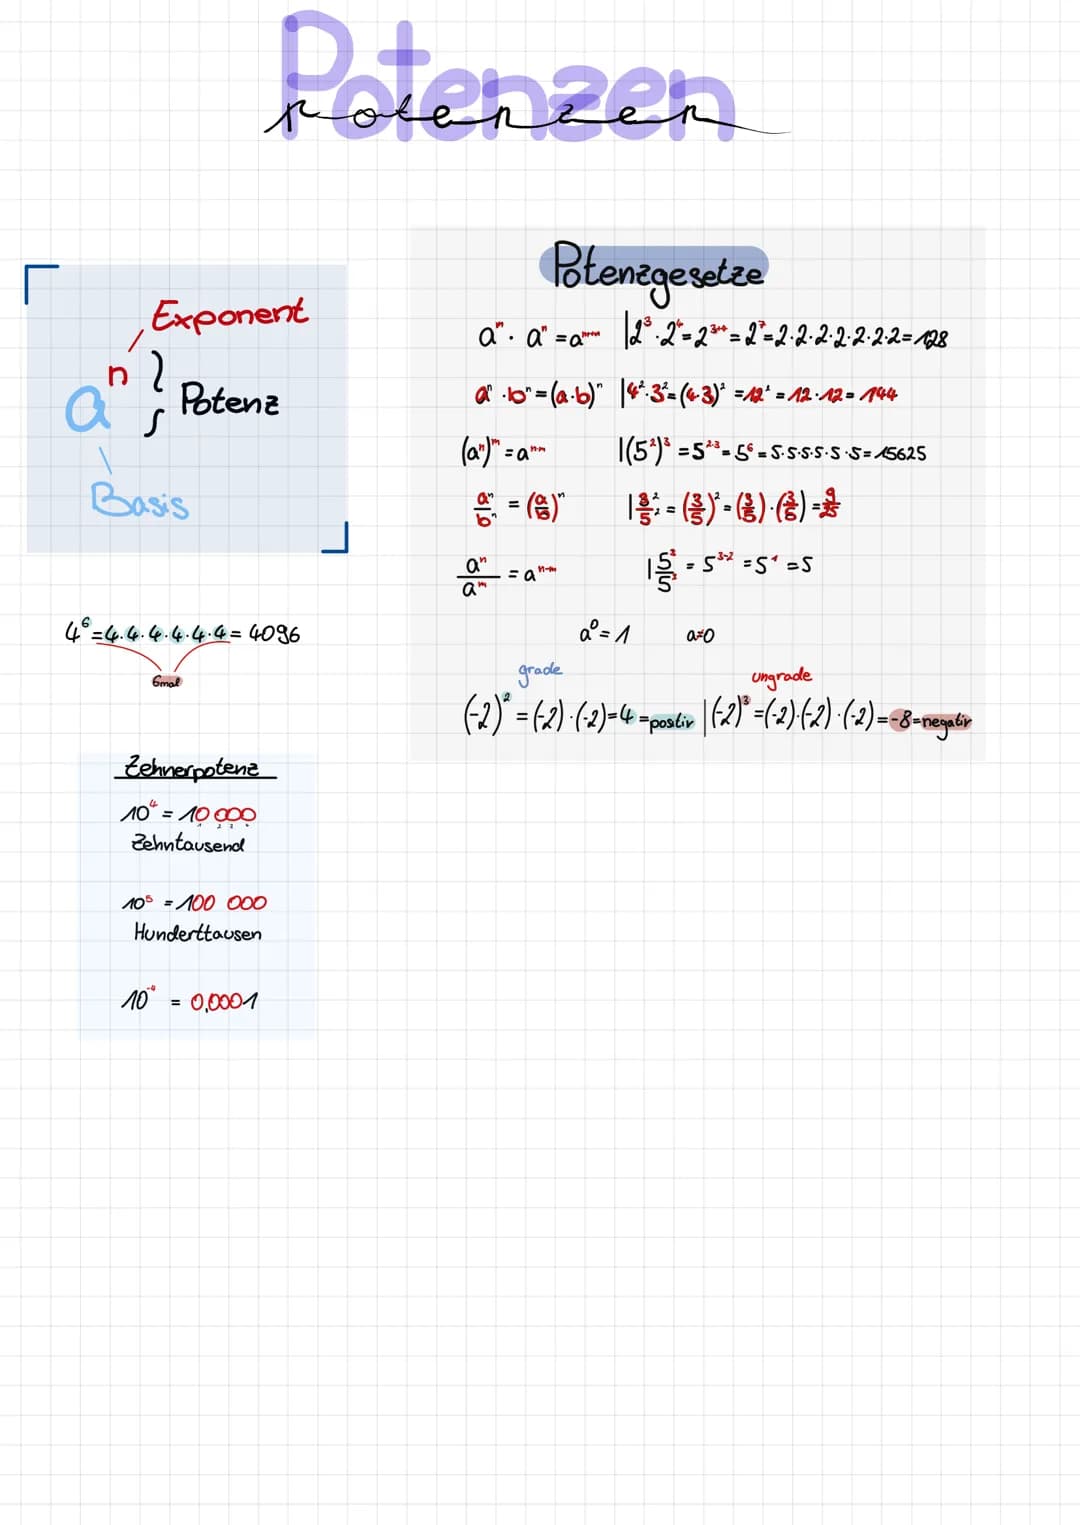 Potenzen
Potenzen
Exponent
aⁿ } Potenz
Basis
4⁶=4·4·4·4·4·4=4096
6mal
Zehnerpotenz
10⁴=10 000
Zehntausend
10⁵=100 000
Hunderttausen
10⁻⁴ = 0,0001
Potenzgesetze
aᵐ · aⁿ = aᵐ⁺ⁿ |2³·2⁴=2³⁺⁴=2⁷=2·2·2·2·2·2·2=128
aⁿ·bⁿ=(a·b)ⁿ |4²·3²=(4·3)²=12²=12·12=144
(aⁿ)ᵐ=aⁿ·ᵐ |(5²)³=5²·³=5⁶=5·5·5·5·5·5=15625
aⁿ/bⁿ=(a/b)ⁿ |3²/5²=(3/5)²=(3/5)·(3/5)=9/25
aⁿ/aᵐ=aⁿ⁻ᵐ = 5³⁻²=5¹=5
a⁰=1 a≠0
grade ungrade
(-2)²=(-2)·(-2)=4=positiv |(-2)³=(-2)·(-2)·(-2)=-8=negativ